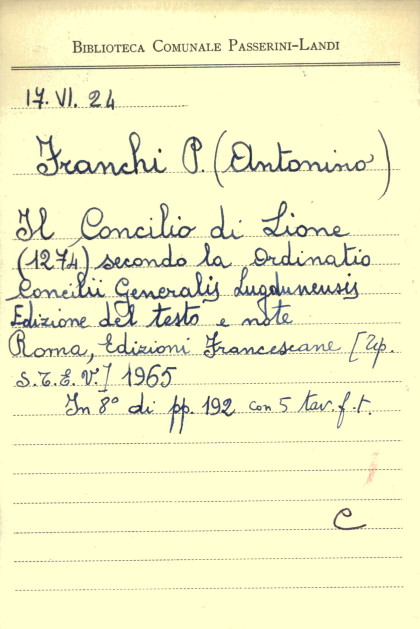 BIBLIOTECA COMUNALE PASSERINI-LANDI
17. VI. 24
Franchi P. (Antonino)
Il Concilio di Lione
(1274) secondo la Ordinatio
Concilii Generalis Lugdunensis
Edizione del testo e note
Roma, Edizioni Francescane [Tip.
S.T.E.V.] 1965
In 8° di pp. 192 con 5 tav. f.t.
C